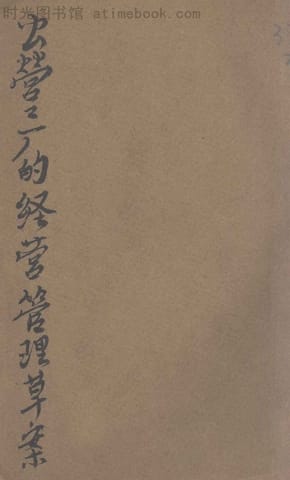 时光图书馆 atimebook.com
公營工厂的经营管理草案